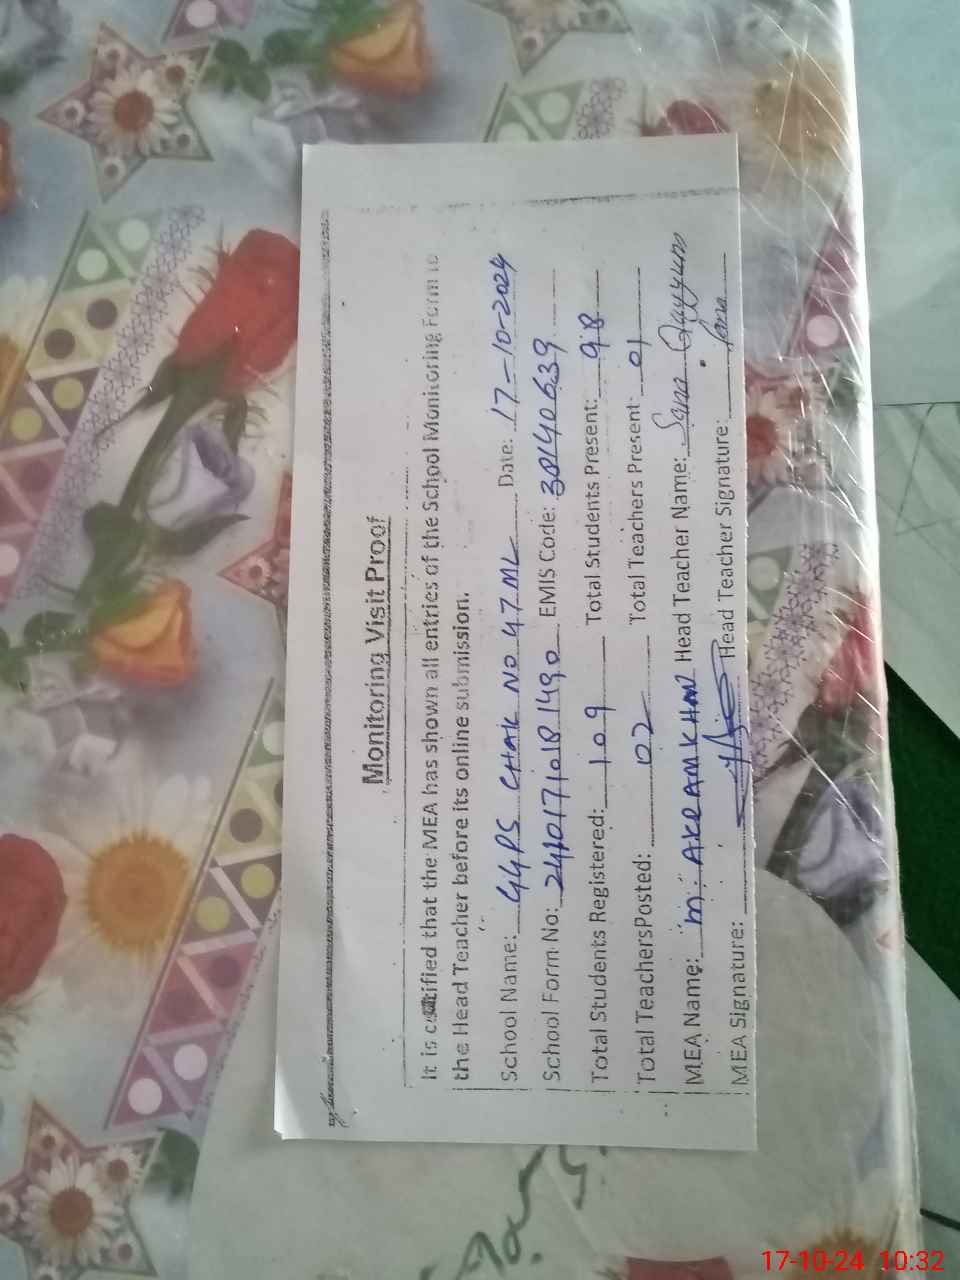 Monitoring Visit Proof
It is certified that the MEA has shown all entries of the School Monitoring Form to
the Head Teacher before its online submission.
School Name: GGPS CHAK NO 47 ML Date: 17-10-2024
School Form No: EMIS Code: 38140639
Total Students Registered: 109 Total Students Present: 98
Total Teachers Posted: 02 Total Teachers Present: 01
MEA Name: M. AKRAM KHAN Head Teacher Name: Sana Qayyum
MEA Signature: Head Teacher Signature: Sana
17-10-24 10:32